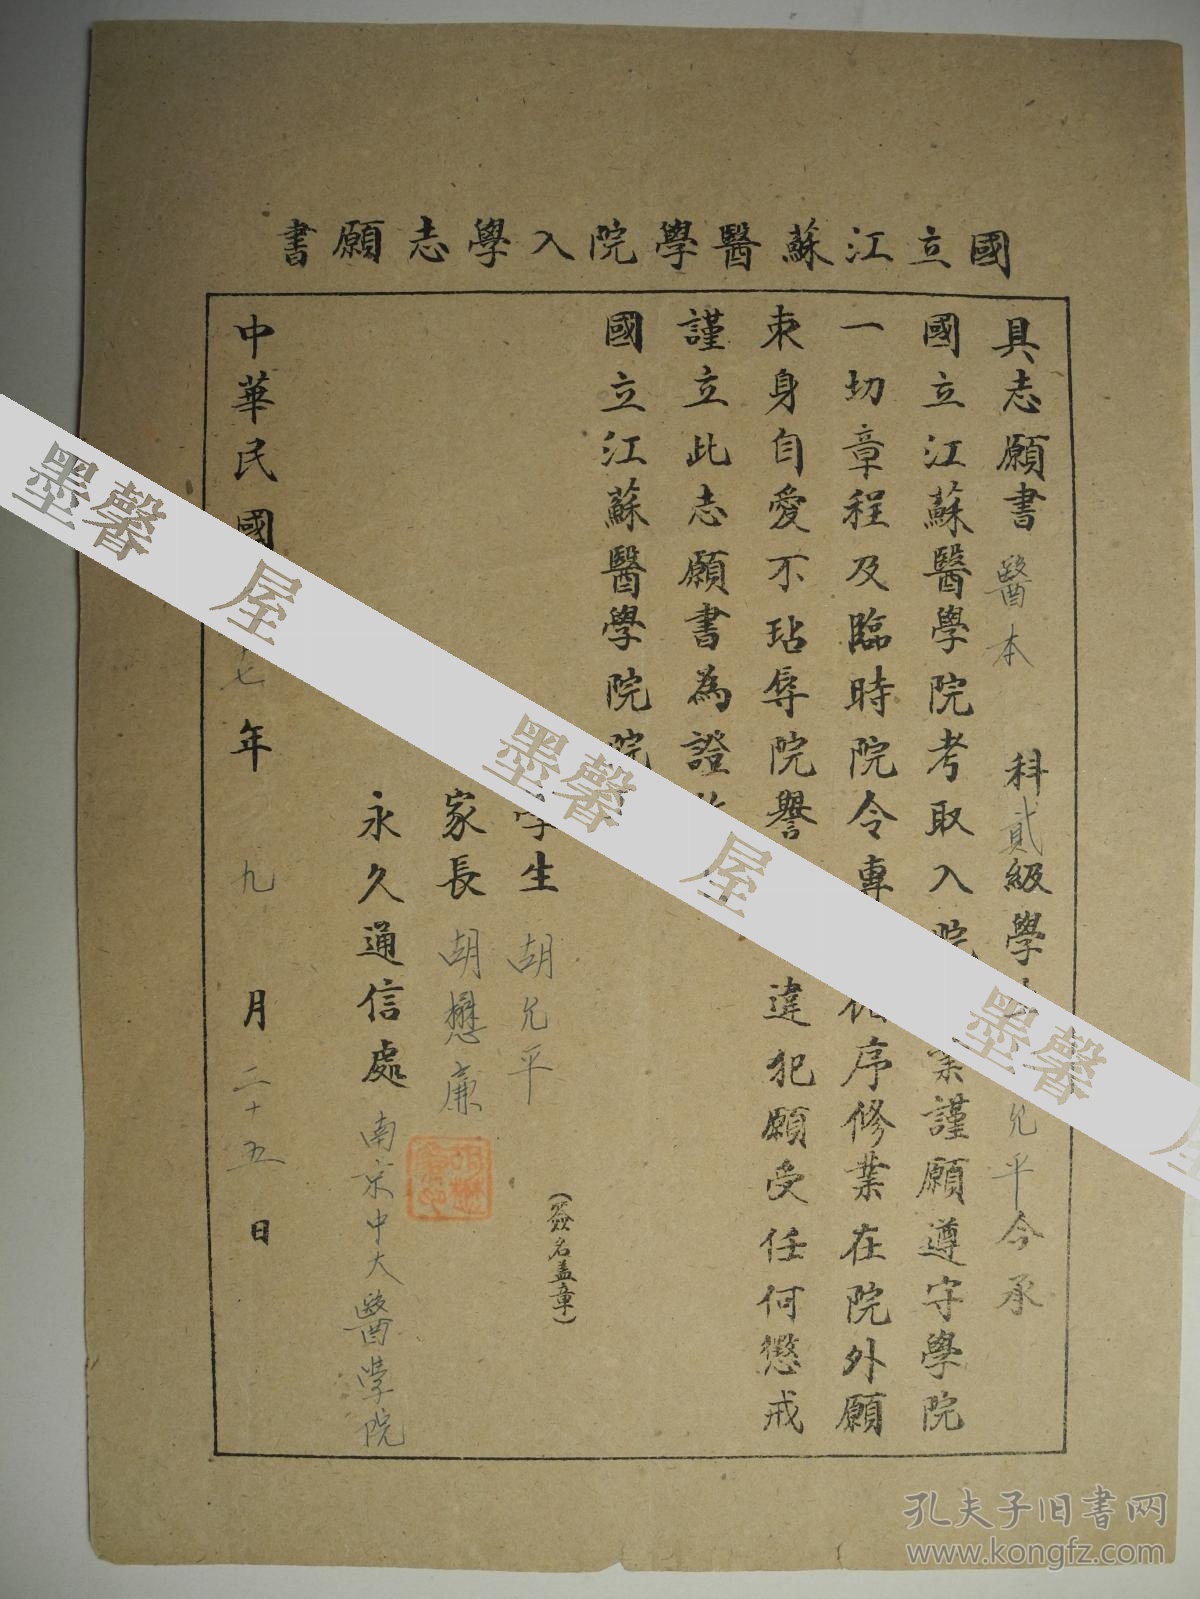 國立江蘇醫學院入學志願書
具志願書醫本科貳級學允平今承
國立江蘇醫學院考取入院業謹願遵守學院
一切章程及臨時院令專序修業在院外願
束身自愛不玷辱院譽違犯願受任何懲戒
謹立此志願書為證
國立江蘇醫學院院
學生胡允平
(簽名盖章)
家長胡懋廉
永久通信處南京中大醫學院
中華民國七年九月二十五日
墨馨屋
墨馨屋
墨馨屋
孔夫子旧书网
www.kongfz.com